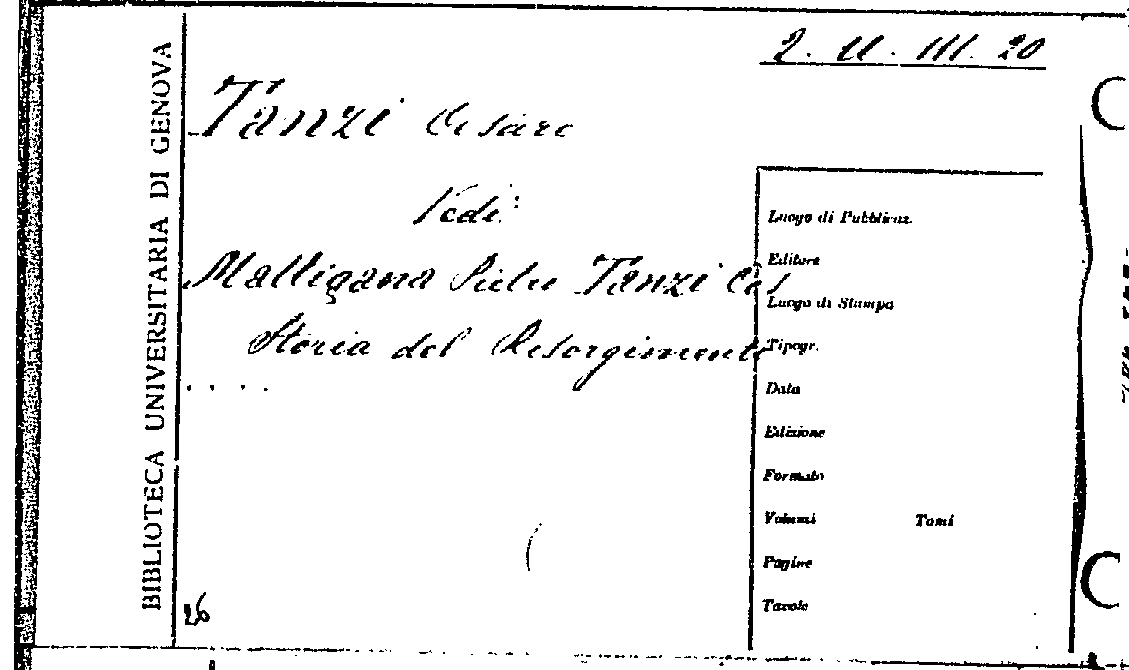 2. U. III. 20
BIBLIOTECA UNIVERSITARIA DI GENOVA
Tanzi Cesare
Vedi:
Malligana Pietro Tanzi Ces
Storia del Risorgimento
....
Luogo di Pubblicaz.
Editore
Luogo di Stampa
Tipogr.
Data
Edizione
Formato
Volumi Tomi
Pagine
Tavole
26